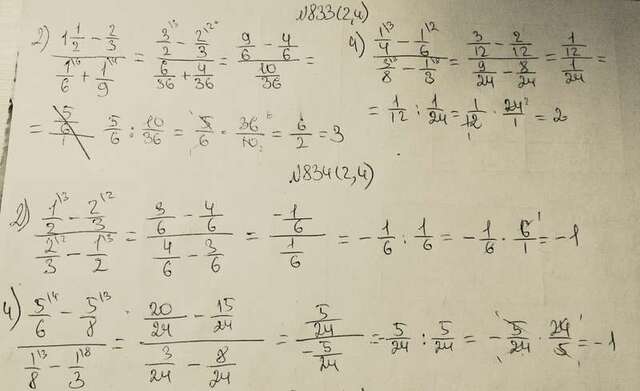 №833(2,4)
2) (1 1/2 - 2/3)/(1/6 + 1/9) = (3/2 - 2/3)/(6/36 + 4/36) = (9/6 - 4/6)/(10/36) =
= 5/6 : 10/36 = 5/6 · 36/10 = 6/2 = 3
4) (1/4 - 1/6)/(3/8 - 1/3) = (3/12 - 2/12)/(9/24 - 8/24) = (1/12)/(1/24) =
= 1/12 : 1/24 = 1/12 · 24/1 = 2
№834(2,4)
2) (1/2 - 2/3)/(2/3 - 1/2) = (3/6 - 4/6)/(4/6 - 3/6) = (-1/6)/(1/6) = -1/6 : 1/6 = -1/6 · 6/1 = -1
4) (5/6 - 5/8)/(1/8 - 1/3) = (20/24 - 15/24)/(3/24 - 8/24) = (5/24)/(-5/24) = -5/24 : 5/24 = -5/24 · 24/5 = -1